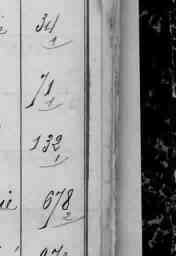 34
1
71
1
132
1
ie 678
2